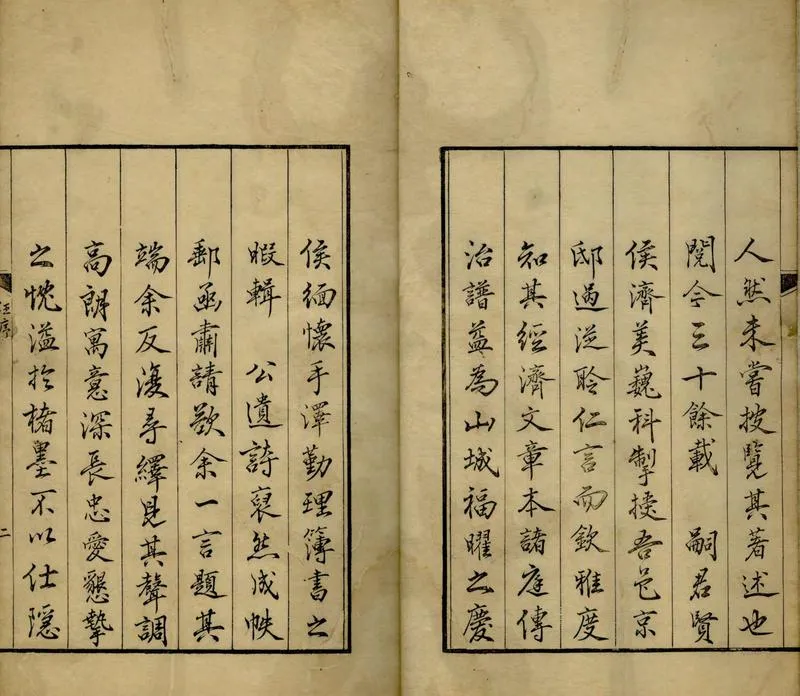 人然未嘗披覽其著述也
閱今三十餘載　嗣君賢
侯濟美巍科掣授吾邑京
邸過從聆仁言而欽雅度
知其經濟文章本諸庭傳
治譜益為山城福曜之慶
侯緬懷手澤勤理簿書之
暇輯　公遺詩裒然成帙
郵函肅請欲余一言題其
端余反復尋繹見其聲調
高朗寓意深長忠愛懇摯
之忱溢於楮墨不以仕隱
序
二